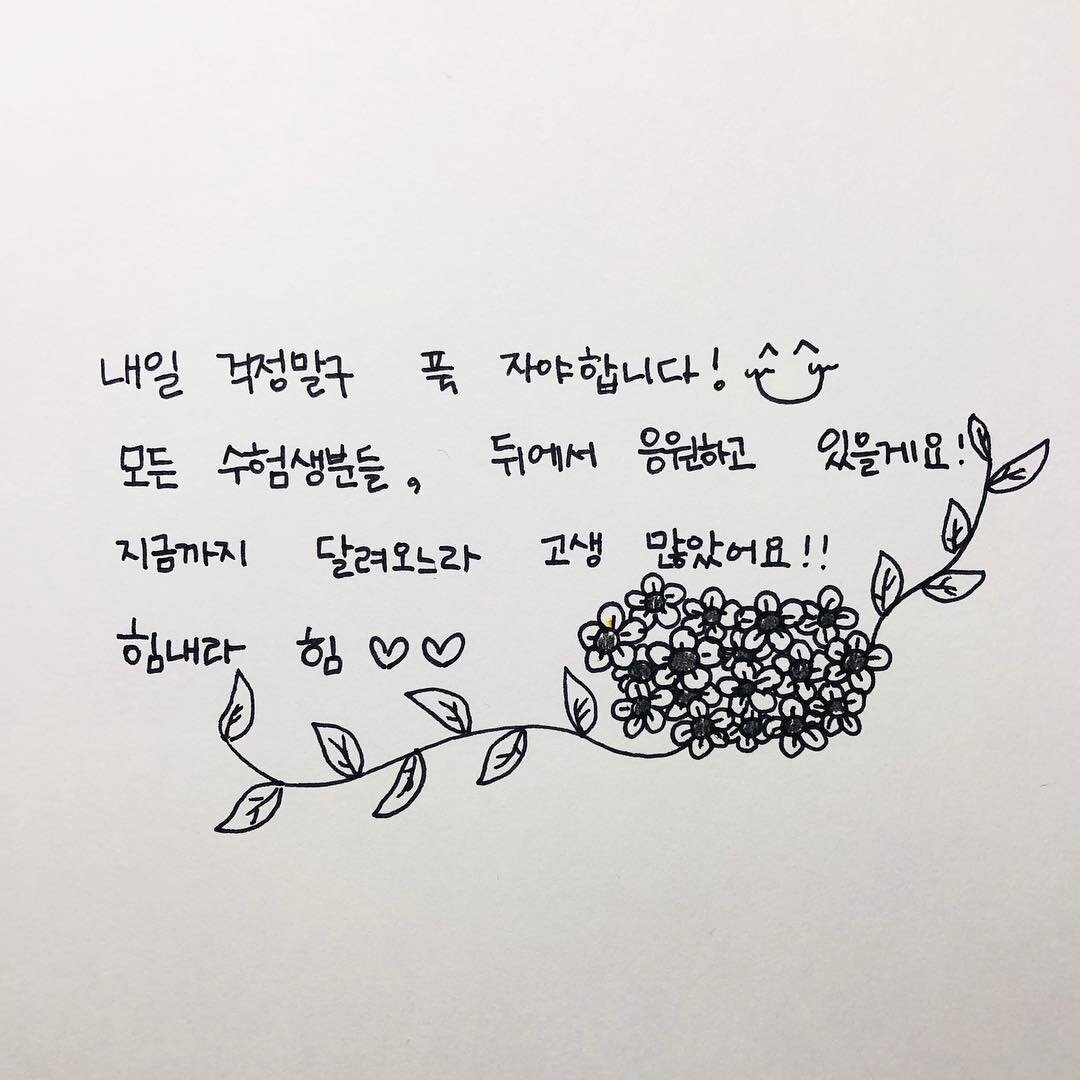 내일 걱정말구 푹 자야합니다!
모든 수험생분들, 뒤에서 응원하고 있을게요!
지금까지 달려오느라 고생 많았어요!!
힘내라 힘 ♡♡